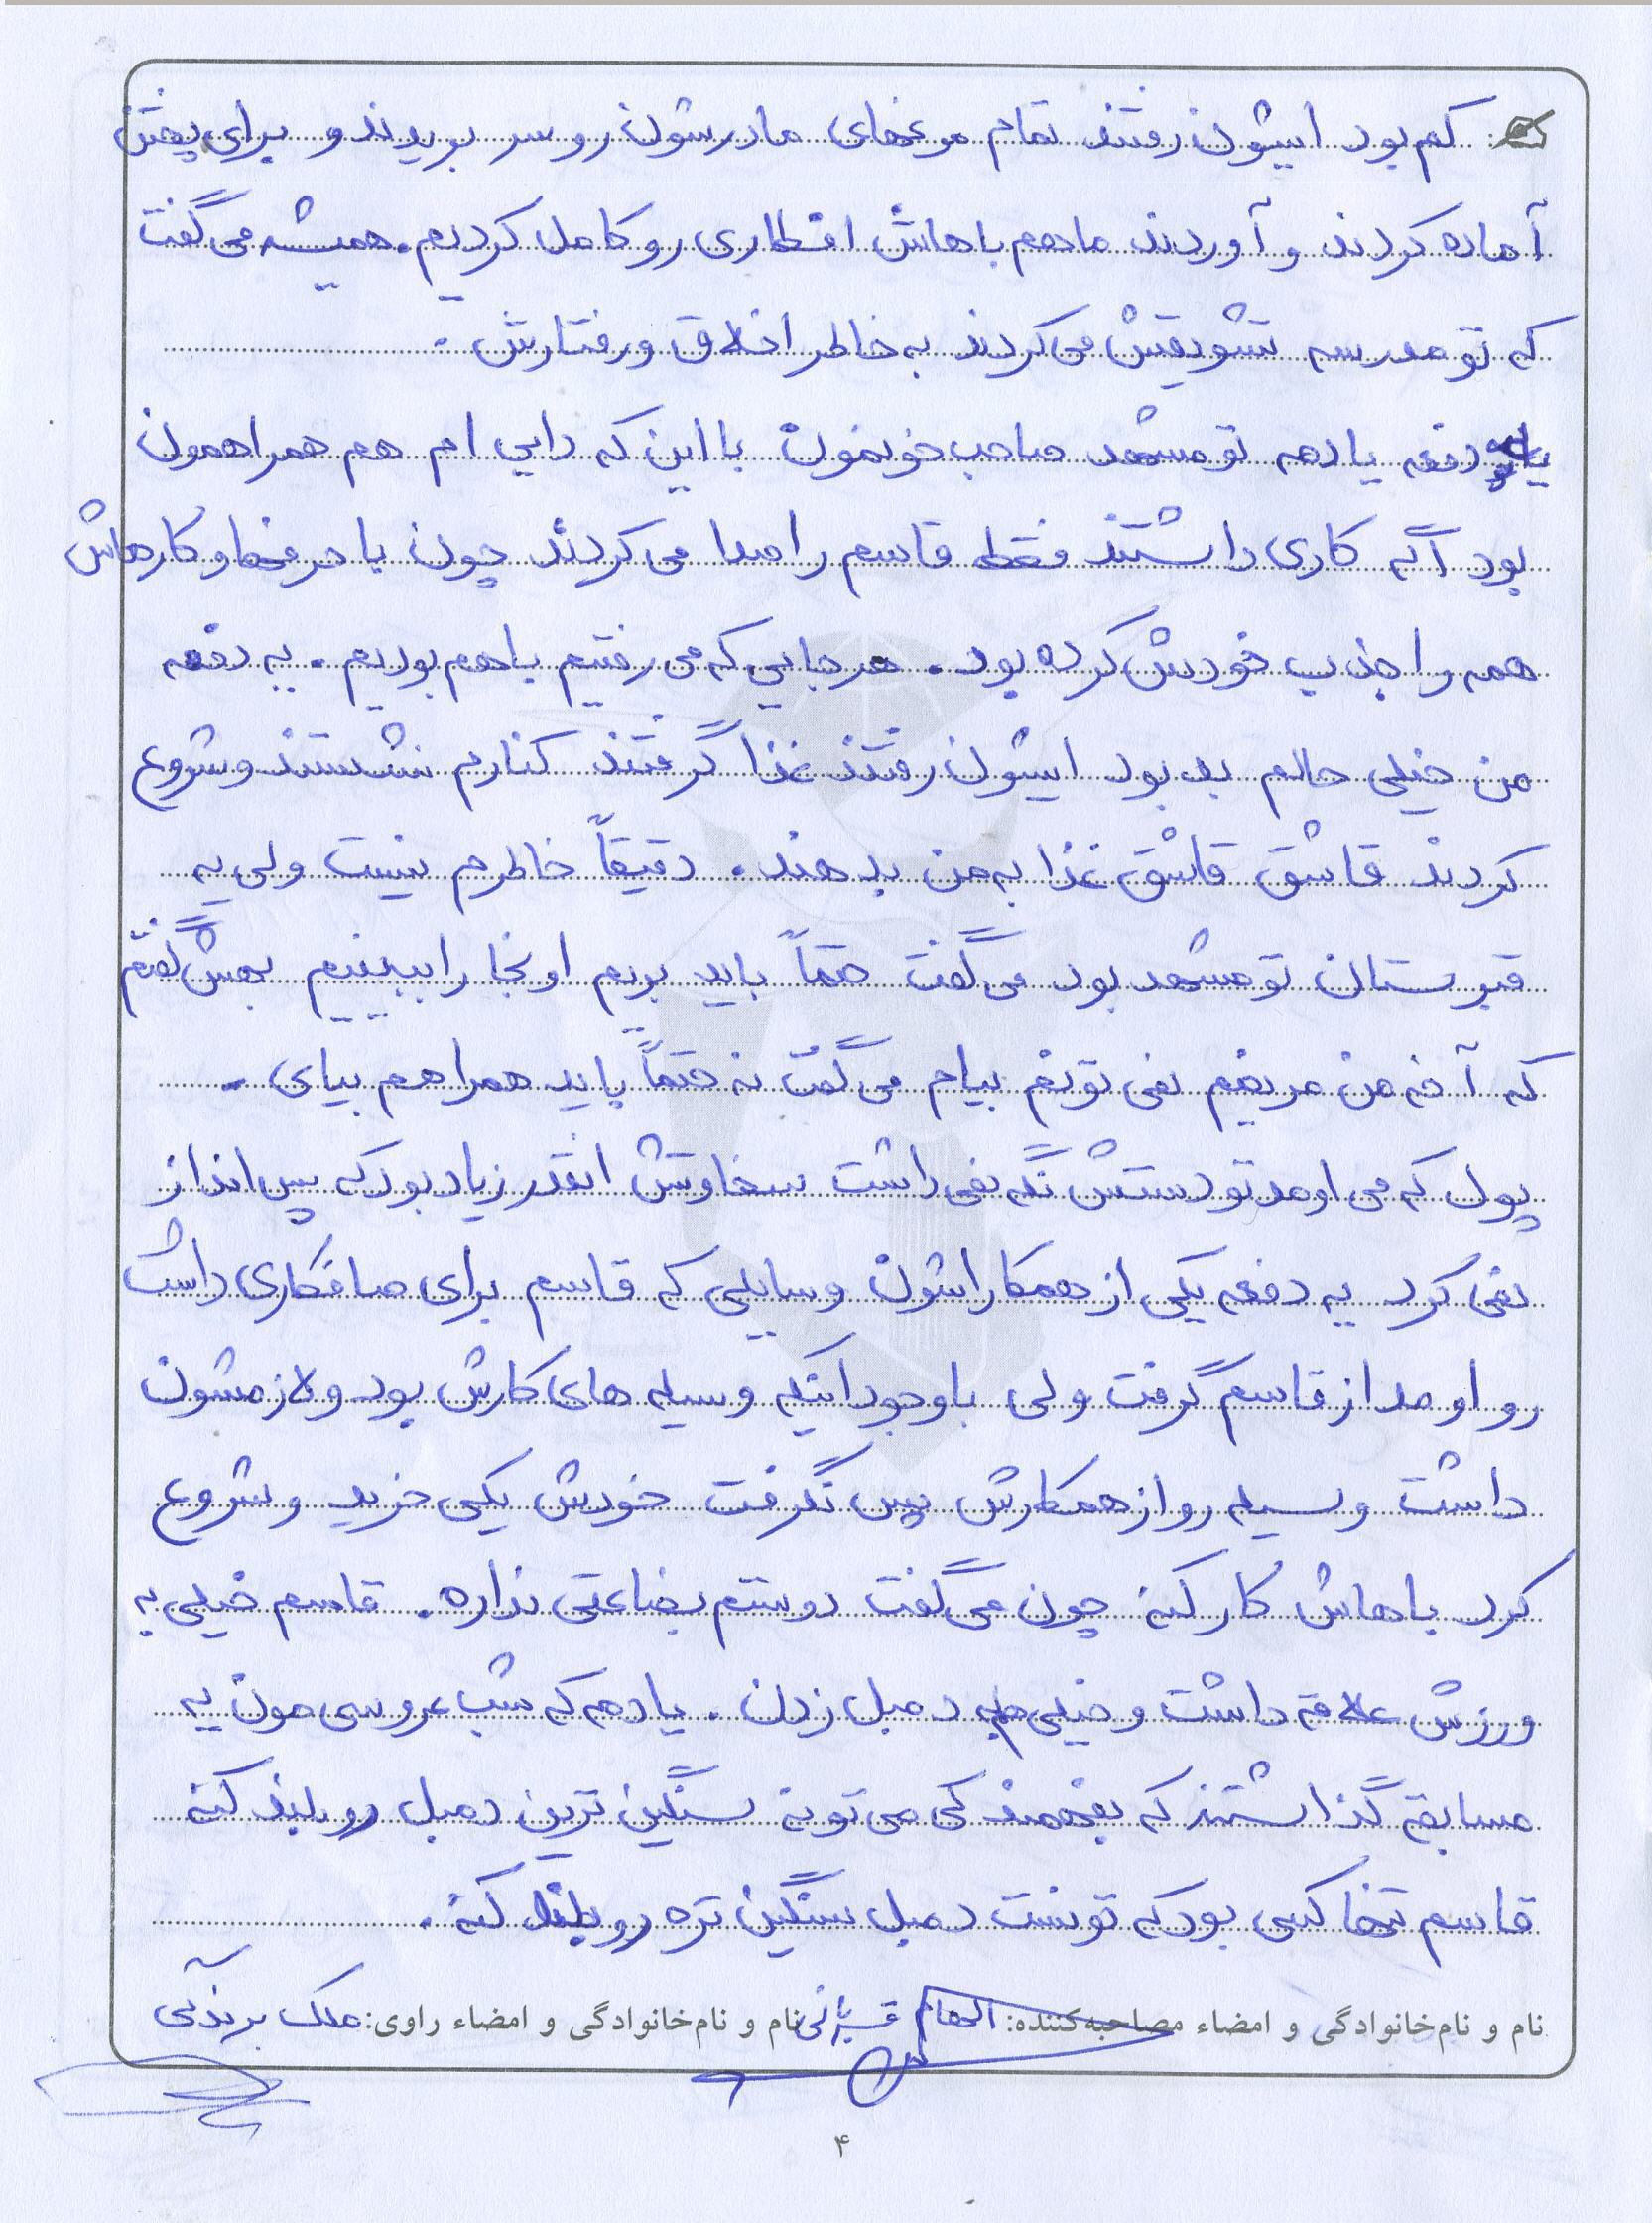 کم بود ایشون رفتند تمام مرغهای مادرشون رو سر بریدند و برای پختن
آماده کردند و آوردند ما هم باهاش افطاری رو کامل کردیم. همیشه می گفت
که تو مدرسه تشویقش می کردند به خاطر اخلاق و رفتارش.
یه دفعه یادمه تو مشهد صاحب خونمون با این که دایی ام هم همراهمون
بود اگه کاری داشتند فقط قاسم را صدا می کردند چون با حرفها و کارهاش
همه را جذب خودش کرده بود. هر جایی که می رفتیم با هم بودیم. یه دفعه
من خیلی حالم بد بود ایشون رفتند غذا گرفتند کنارم نشستند و شروع
کردند قاشق قاشق غذا به من بدهند. دقیقاً خاطرم نیست ولی یه
قبرستان تو مشهد بود می گفت حتماً باید بریم اونجا را ببینیم بهش گفتم
که آخه من مریضم نمی تونم بیام می گفت نه حتماً باید همراهم بیای.
پول که می اومد تو دستش نگه نمی داشت سخاوتش انقدر زیاد بود که پس انداز
نمی کرد یه دفعه یکی از همکاراشون وسایلی که قاسم برای صافکاری داشت
رو اومد از قاسم گرفت ولی با وجود اینکه وسیله های کارش بود و لازمشون
داشت وسیله رو از همکارش پس نگرفت خودش یکی خرید و شروع
کرد باهاش کار کنه چون می گفت دوستم بضاعتی نداره. قاسم خیلی به
ورزش علاقه داشت و خیلی به دمبل زدن. یادمه که شب عروسی مون یه
مسابقه گذاشتند که بفهمند کی می تونه سنگین ترین دمبل رو بلند کنه
قاسم تنها کسی بود که تونست دمبل سنگین تره رو بلند کنه.
نام و نام‌خانوادگی و امضاء مصاحبه‌کننده: الهام قربانی نام و نام‌خانوادگی و امضاء راوی: ملک برندآسی
۴